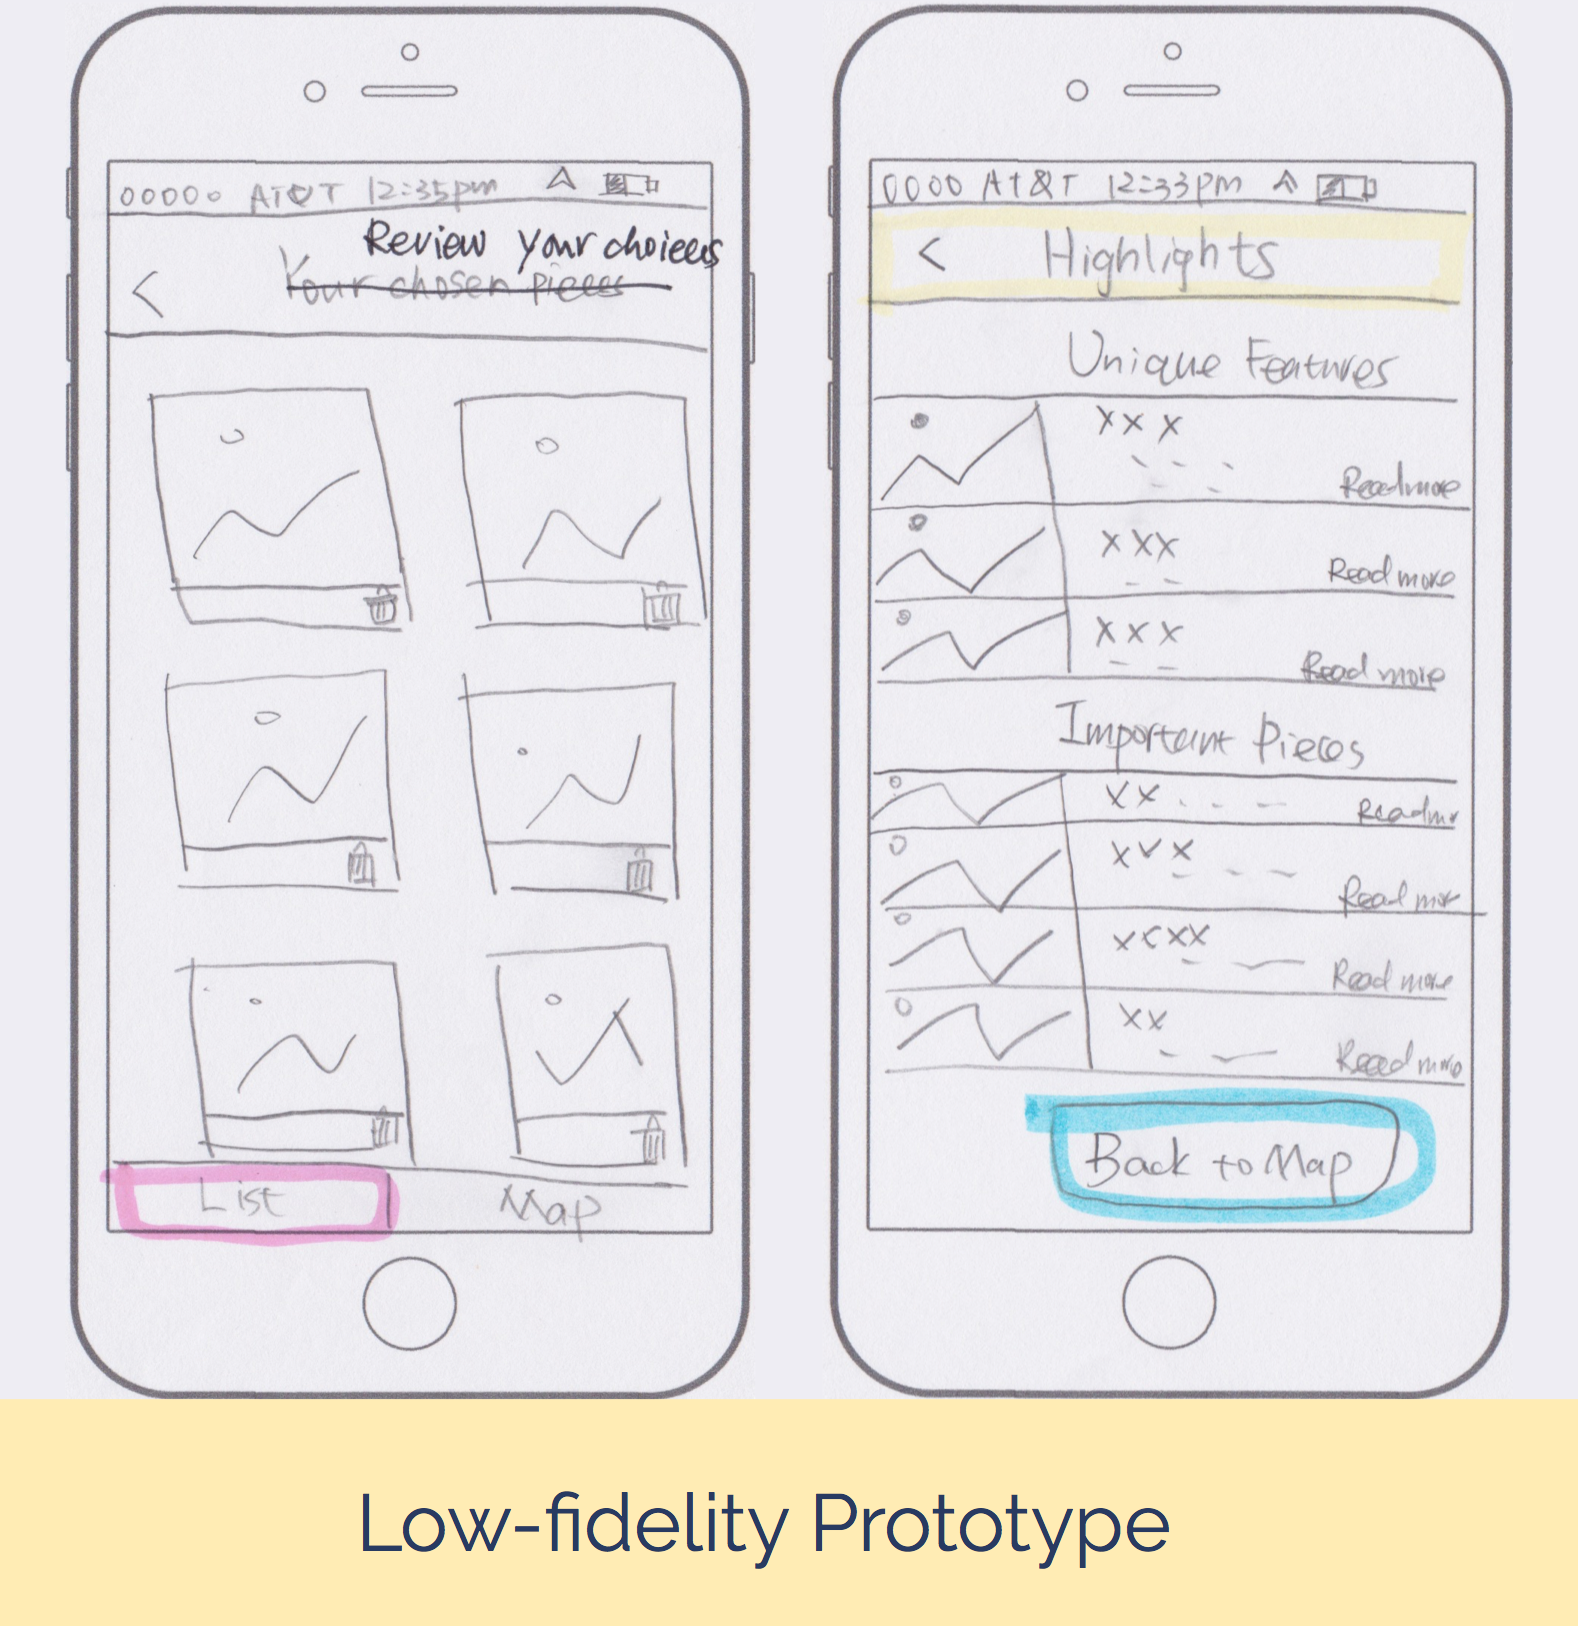 00000 AT&T 12:35pm
Review your choices
Your chosen pieces
<
List
Map
0000 AT&T 12:33pm
< Highlights
Unique Features
xxx
Read more
xxx
Read more
xxx
Read more
Important Pieces
xx
Read mr
xvx
Read mor
xxxx
Read more
xx
Read more
Back to Map
Low-fidelity Prototype